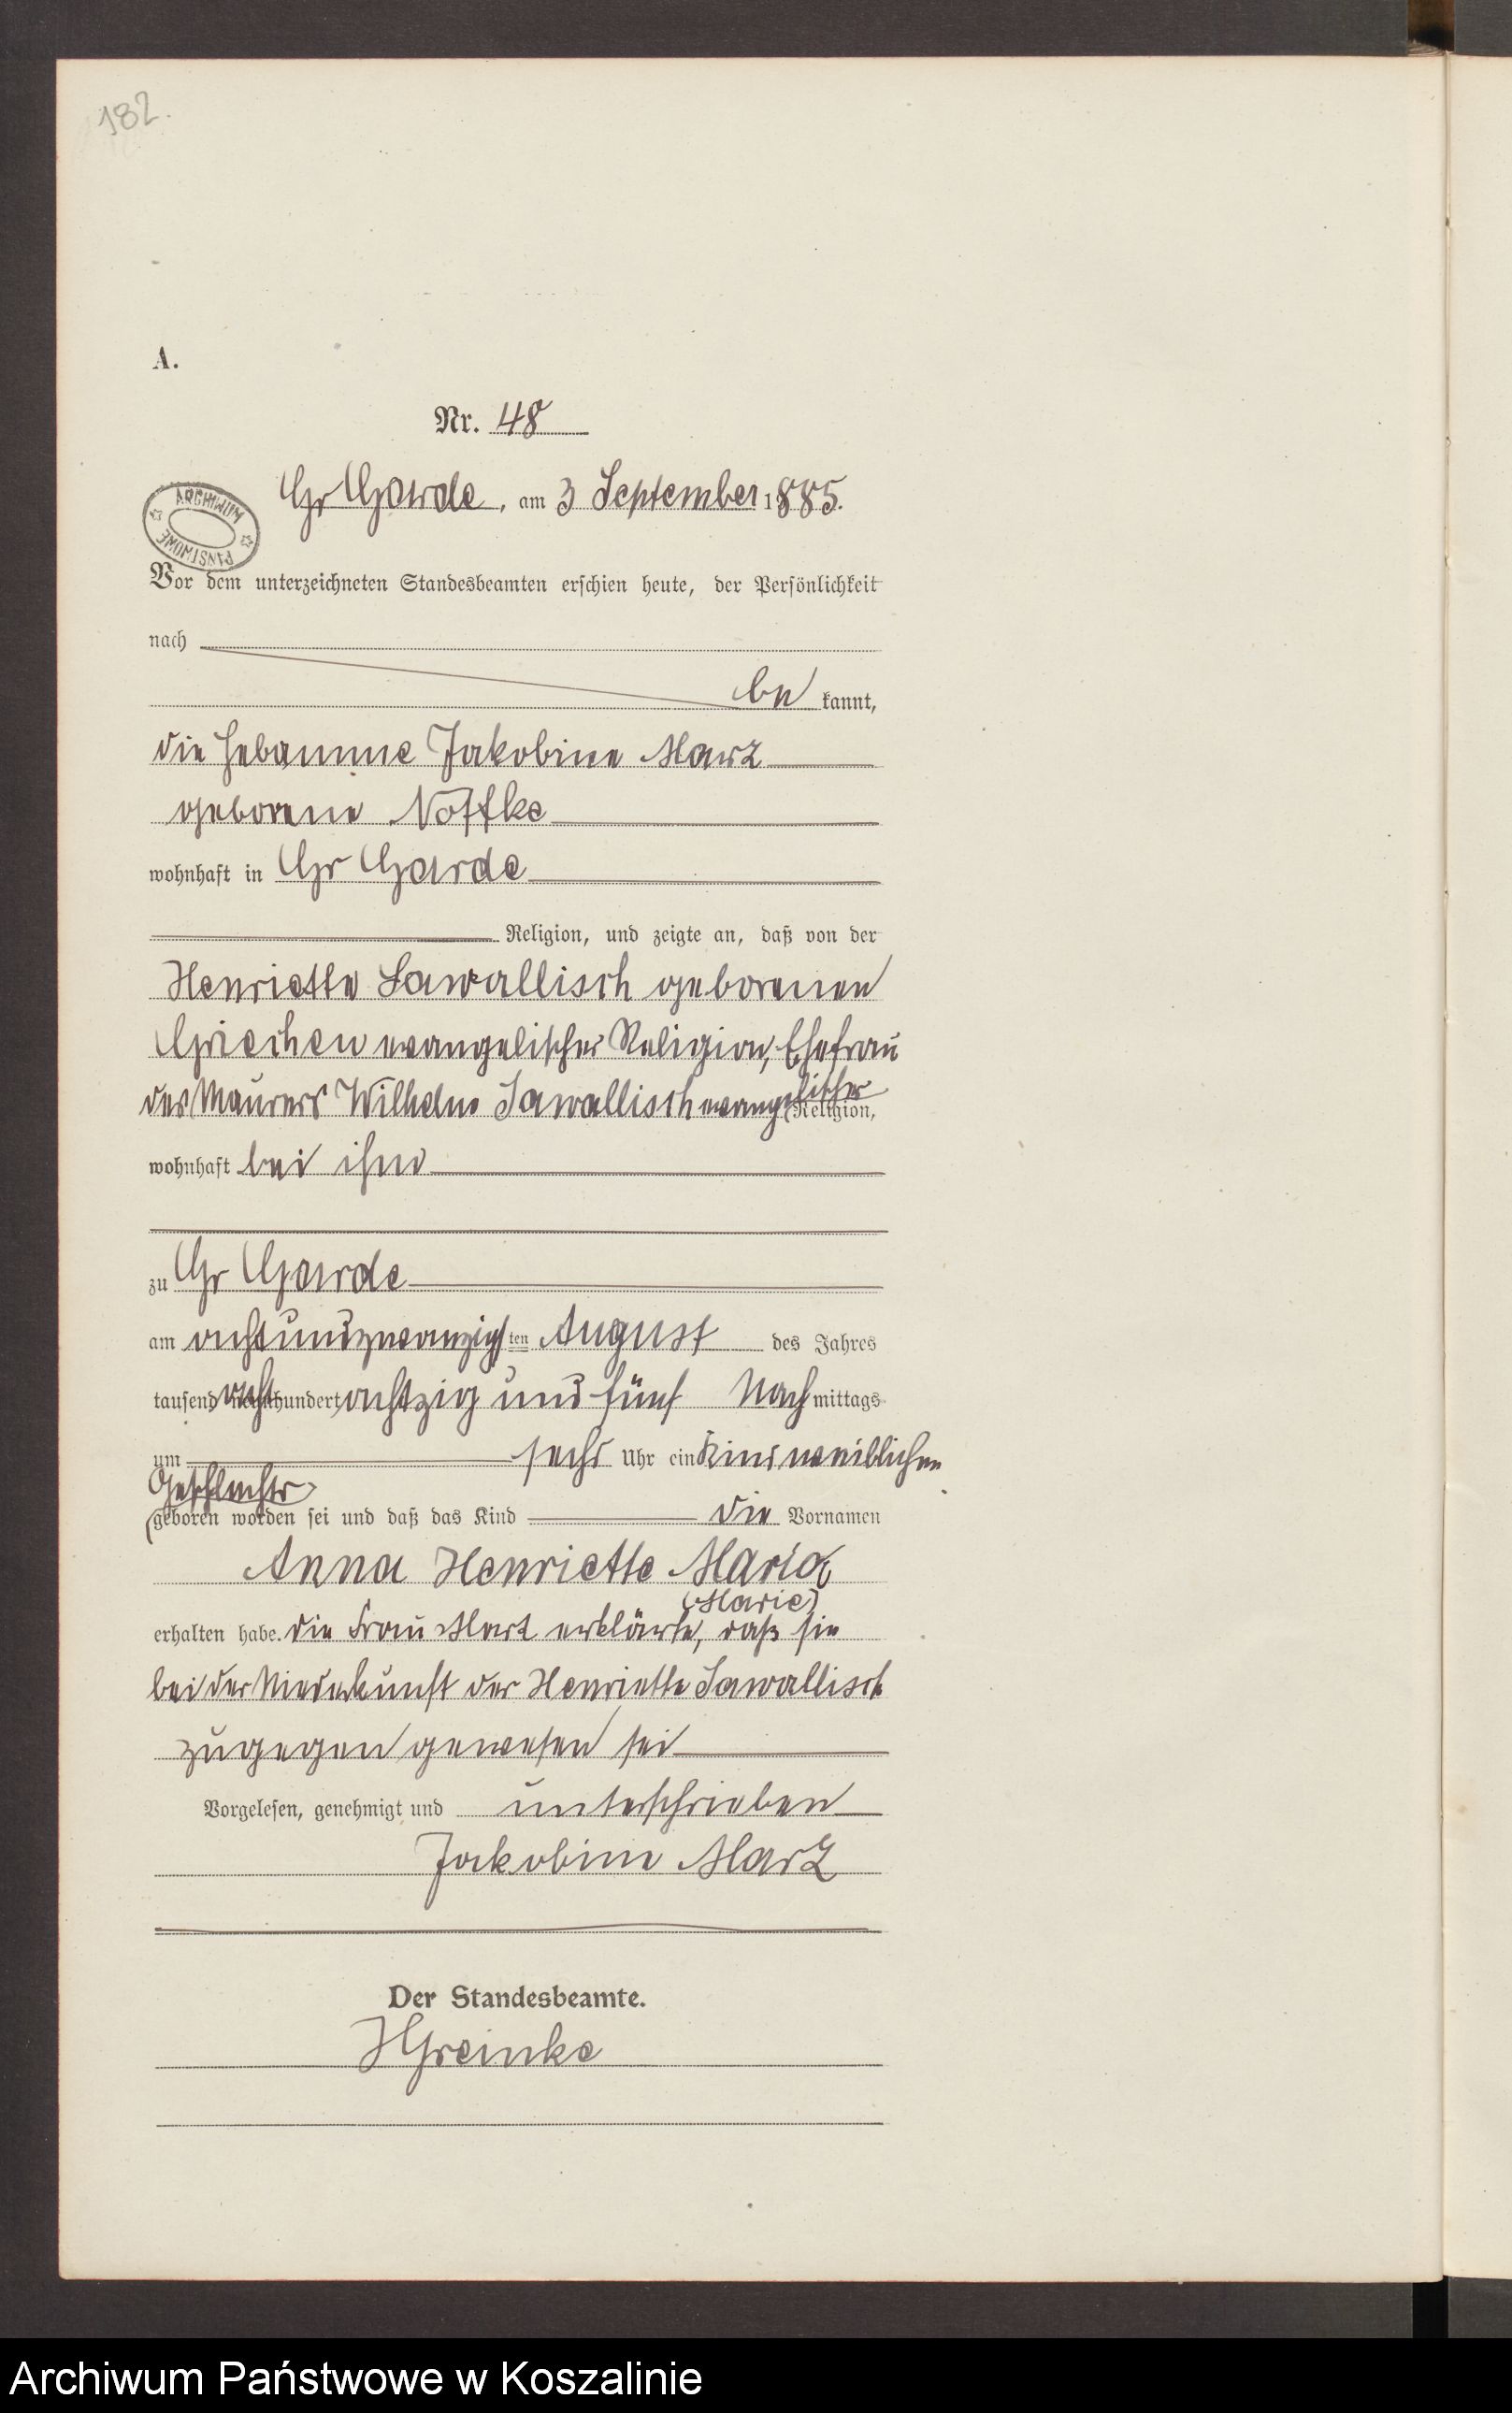 182.
A.
Nr. 48
Gr Garde, am 3 September 1885.
ARCHIWUM PAŃSTWOWE
Vor dem unterzeichneten Standesbeamten erschien heute, der Persönlichkeit
nach
be kannt,
die Hebamme Jakobine Marz
geborene Noffke
wohnhaft in Gr Garde
Religion, und zeigte an, daß von der
Henriette Sawallisch geborenen
Griechen evangelischer Religion, Ehefrau
des Maurers Wilhelm Sawallisch evangelischer Religion,
wohnhaft bei ihm
zu Gr Garde
am achtundzwanzigsten August des Jahres
tausend acht hundert achtzig und fünf Nach mittags
um sechs Uhr ein Kind weiblichen
Geschlechts
geboren worden sei und daß das Kind die Vornamen
Anna Henriette Maria
(Marie)
erhalten habe. die Frau Marz erklärte, daß sie
bei der Niederkunft der Henriette Sawallisch
zugegen gewesen sei
Vorgelesen, genehmigt und unterschrieben
Jakobine Marz
Der Standesbeamte.
HGreinke
Archiwum Państwowe w Koszalinie